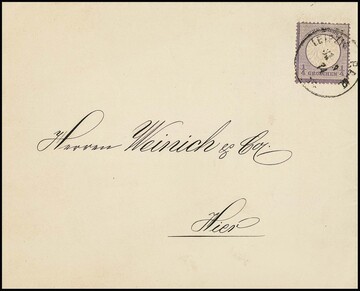 ¼ GROSCHEN ¼
Herren Weinich & Co.
Hier